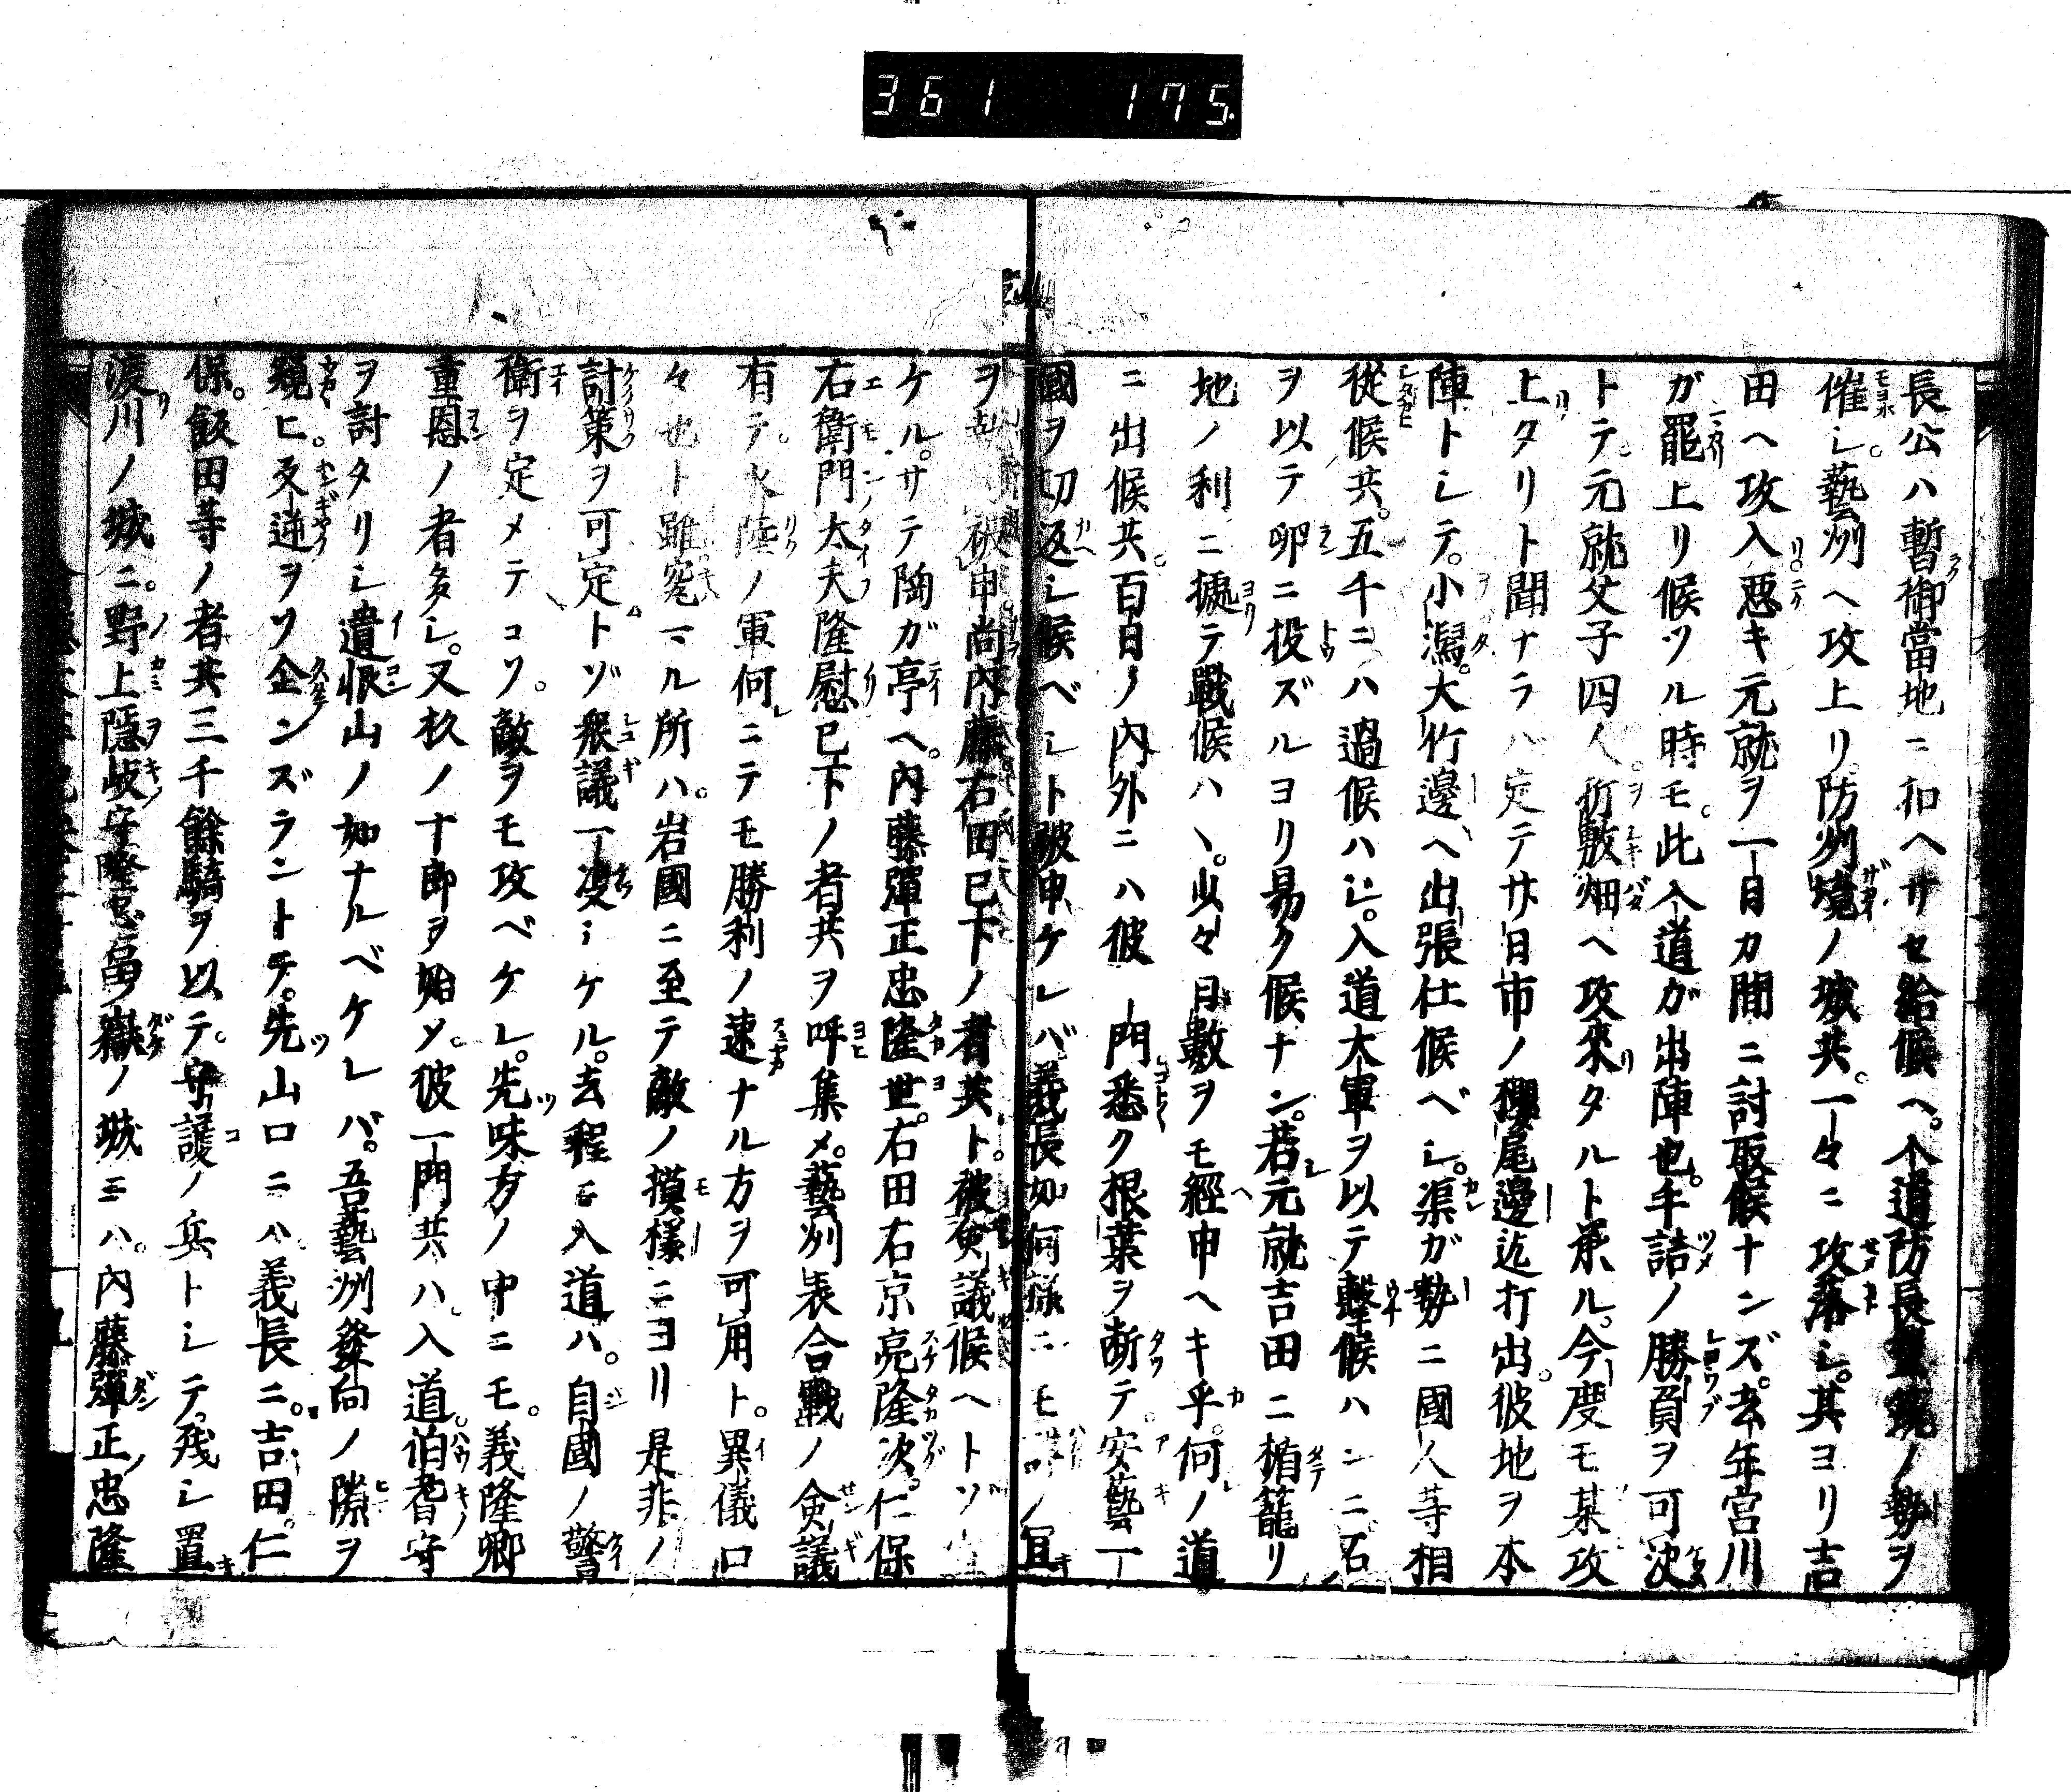 361 175.
長公ハ暫御當地ニ扣ヘサセ給候ヘ。入道防長豊筑ノ勢ヲ
催シ。藝州ヘ攻上リ。防州境ノ城共。一々ニ攻落シ。其ヨリ吉
田ヘ攻入。悪キ元就ヲ一日カ間ニ討取候ナンズ。去年宮川
ガ罷上リ候ツル時モ。此入道ガ出陣也。手詰ノ勝負ヲ可決
トテ。元就父子四人。折敷畑ヘ攻來タルト承ル。今度モ某攻
上タリト聞ナラバ定テ廿日市ノ櫻尾邊迄打出。彼地ヲ本
陣トシテ。小潟。大竹邊ヘ出張仕候ベシ。渠ガ勢ニ國人等相
從候共。五千ニハ過候ハジ。入道大軍ヲ以テ擊候ハンニ。石
ヲ以テ卵ニ投ズルヨリ易ク候ナン。若元就吉田ニ楯籠リ
地ノ利ニ據テ戰候ハヽ。少々日數ヲモ經申ヘキ乎。何ノ道
ニ出候共。百日ノ内外ニハ彼一門悉ク根葉ヲ断テ。安藝一
國ヲ切返シ候ベシト被申ケレバ義長如何樣ニモ ノ宜
ヲ 被申尚内藤右田已下ノ者共ト。被僉議候ヘトゾ
ケル。サテ陶ガ亭ヘ。内藤彈正忠隆世。右田右京亮隆次。仁保
右衛門大夫隆慰已下ノ者共ヲ呼集メ。藝州表合戰ノ僉議
有テ。水陸ノ軍何ニテモ勝利ノ速ナル方ヲ可用ト。異儀口
々也ト雖。究マル所ハ。岩國ニ至テ敵ノ摸樣ニヨリ是非ノ
計策ヲ可定トゾ衆議一決シケル。去程ニ入道ハ。自國ノ警
衛ヲ定メテコソ。敵ヲモ攻ベケレ。先味方ノ中ニモ。義隆卿
重恩ノ者多シ。又杉ノ十郎ヲ始メ。彼一門共ハ。入道。伯耆守
ヲ討タリシ遺恨山ノ如ナルベケレバ。吾藝州發向ノ隙ヲ
窺ヒ。反逆ヲソ企ンズラントテ。先山口ニハ。義長ニ。吉田。仁
保。飯田等ノ者共三千餘騎ヲ以テ。守護ノ兵トシテ。残シ置
渡川ノ城ニ。野上隠岐守隆忠。冨嶽ノ城ニハ。内藤彈正忠隆